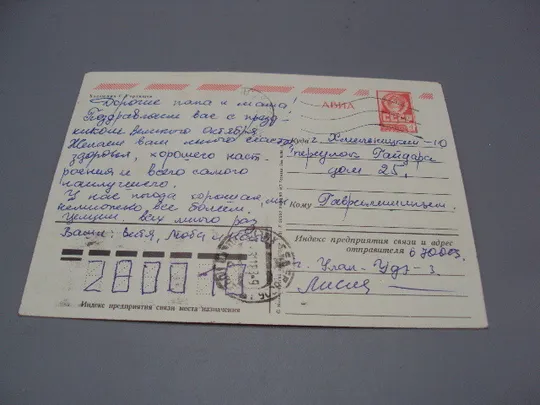 АВИА
СССР
Дорогие папа и мама!
Поздравляем вас с празд-
ником великого Октября.
Желаем вам много счастья,
здоровья, хорошего наст-
роения и всего самого
наилучшего.
У нас погода хорошая, но
немножко все болеем.
Целуем всех много раз
Ваши:
Куда г. Хмельницкий-10
переулок Гайдара
дом 25,
Кому Гаврилишиным
Индекс предприятия связи и адрес
отправителя 670003
г. Улан-Удэ-3
280010
Индекс предприятия связи места назначения